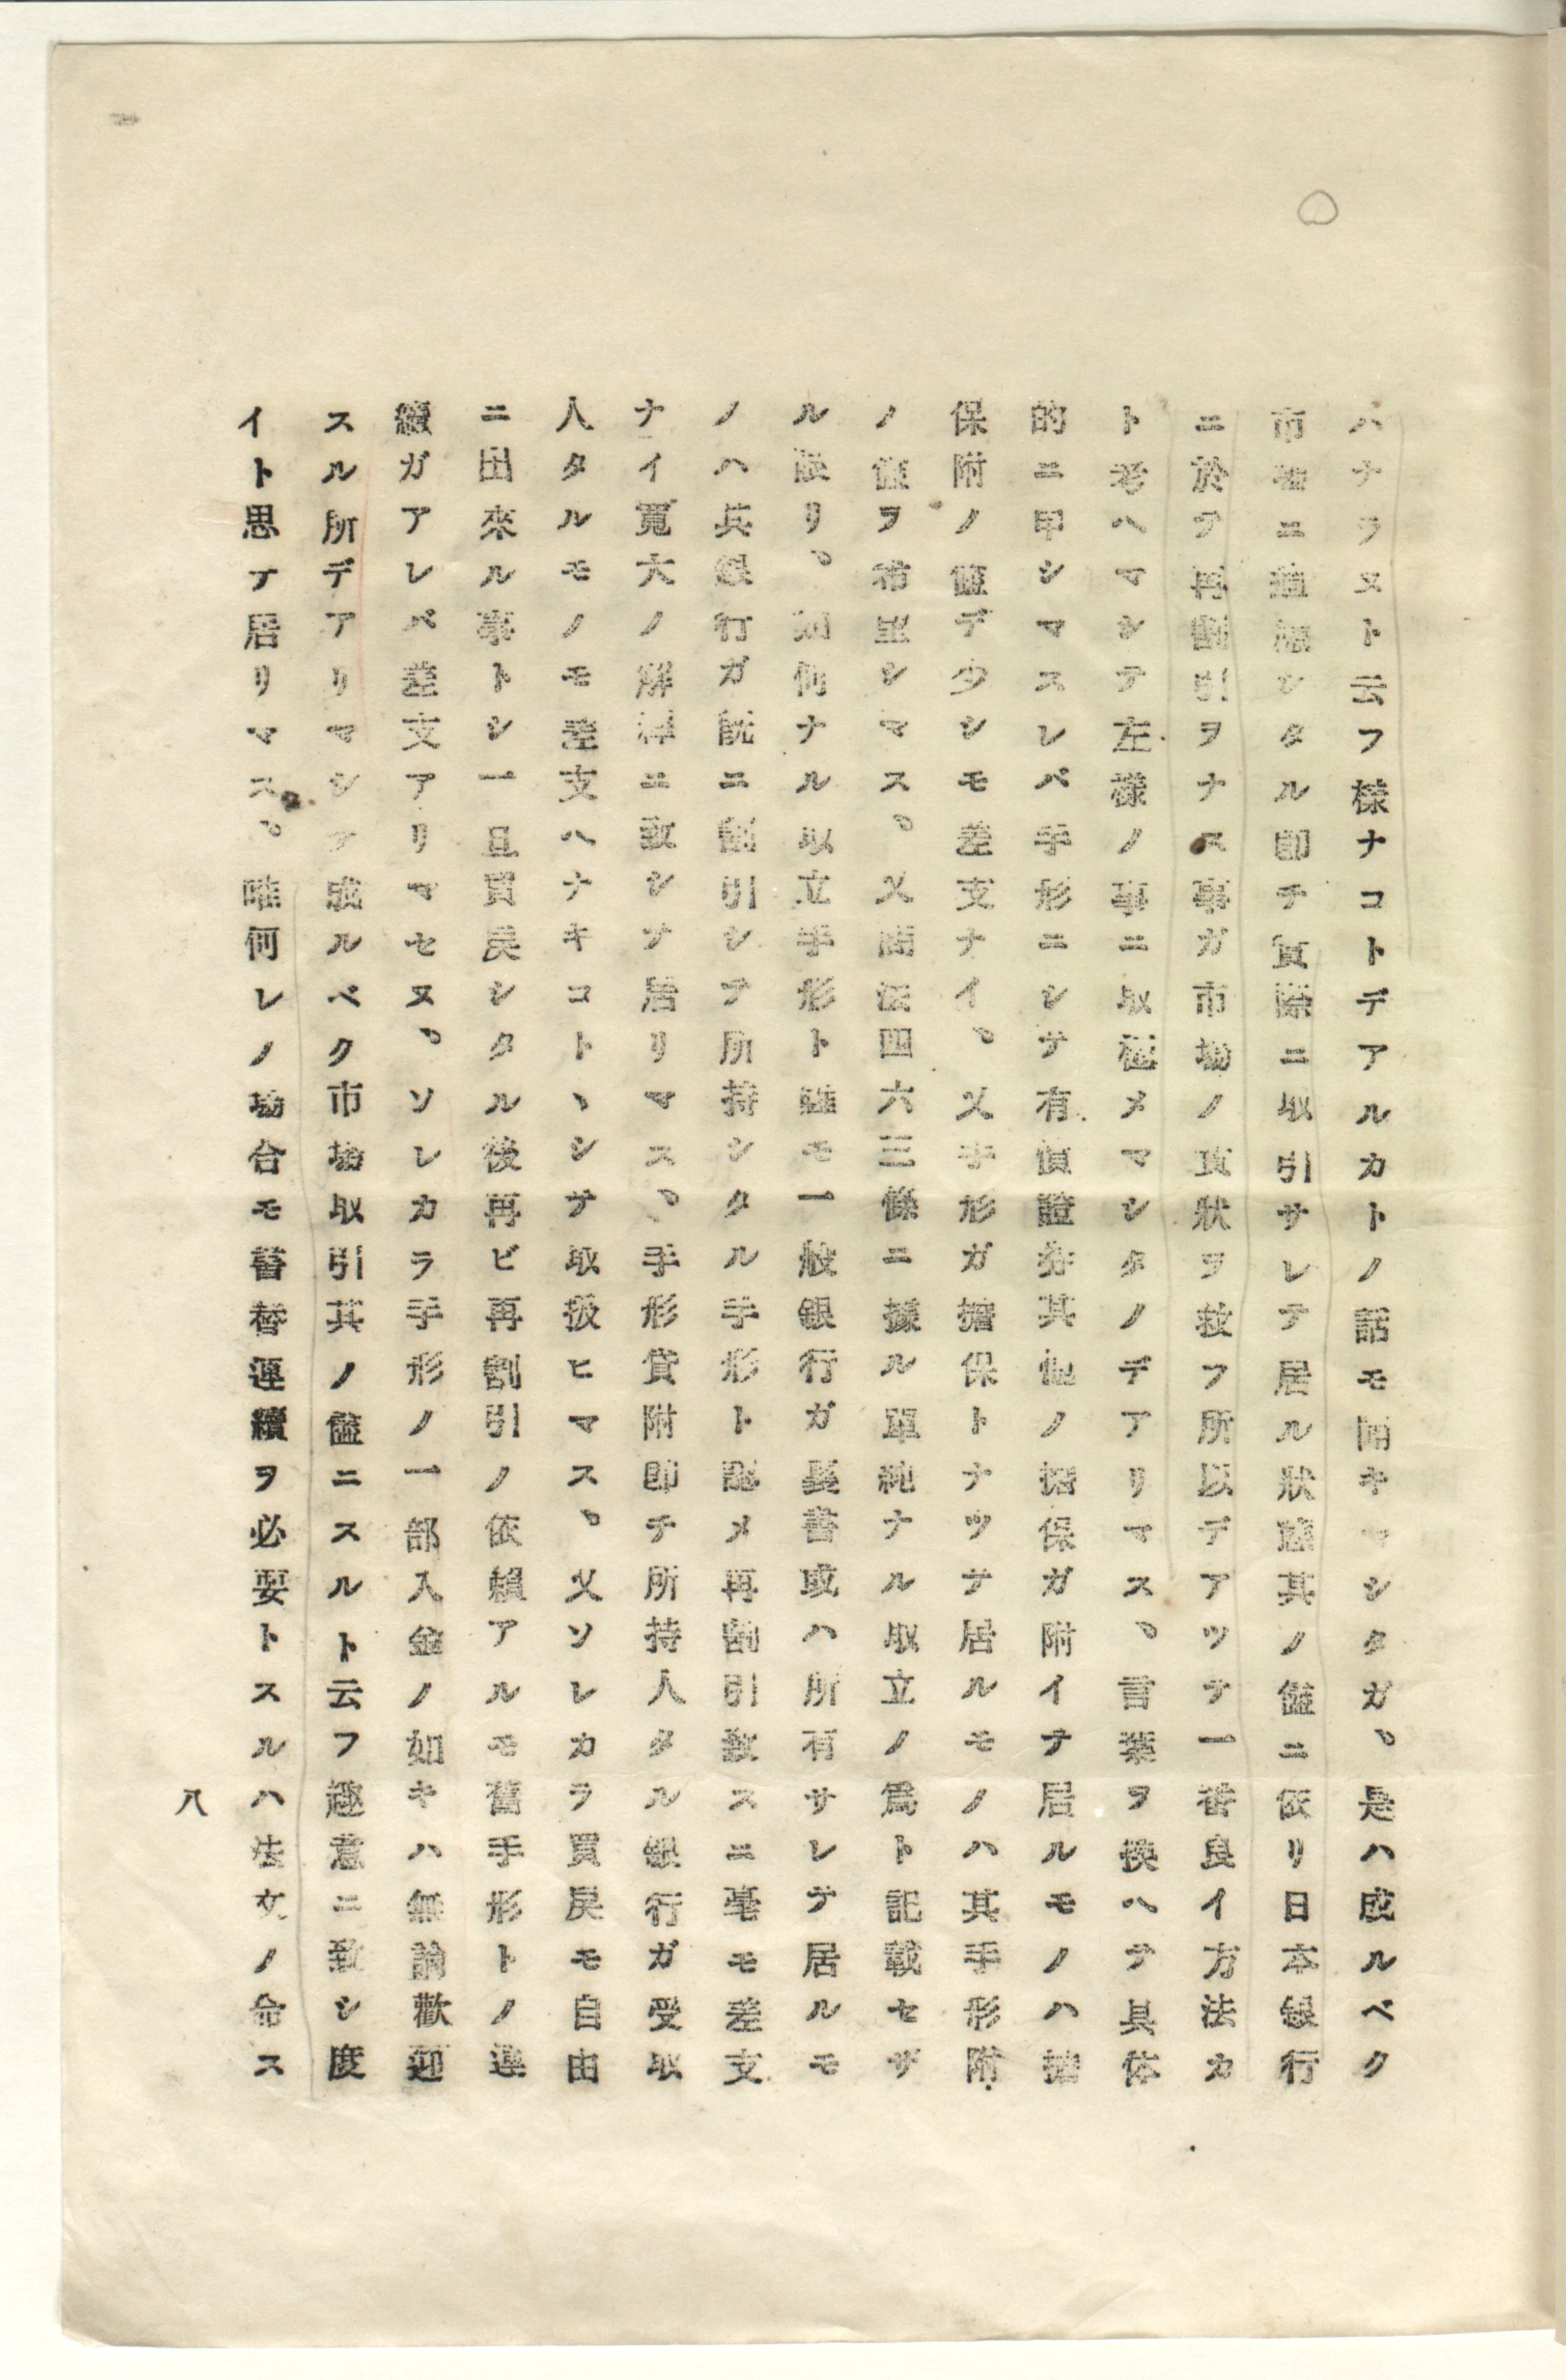 ハナラヌト云フ樣ナコトデアルカトノ話モ聞キマシタガ、是ハ成ルベク
市場ニ通融シタル卽チ實際ニ取引サレテ居ル狀態其ノ儘ニ依リ日本銀行
ニ於テ再割引ヲナス事ガ市場ノ實狀ヲ救フ所以デアツテ一番良イ方法カ
ト考ヘマシテ左樣ノ事ニ取極メマシタノデアリマス、言葉ヲ換ヘテ具体
的ニ申シマスレバ手形ニシテ有價證券其他ノ擔保ガ附イテ居ルモノハ擔
保附ノ儘デ少シモ差支ナイ、又手形ガ擔保トナツテ居ルモノハ其手形附
ノ儘ヲ希望シマス、又商法四六三條ニ據ル單純ナル取立ノ爲ト記載セザ
ル限リ、如何ナル取立手形ト雖モ一般銀行ガ裏書或ハ所有サレテ居ルモ
ノハ其銀行ガ既ニ割引シテ所持シタル手形ト認メ再割引致スニ毫モ差支
ナイ寬大ノ解釋ニ致シテ居リマス、手形貸附卽チ所持人タル銀行ガ受取
人タルモノモ差支ヘナキコトヽシテ取扱ヒマス、又ソレカラ買戻モ自由
ニ出來ル事トシ一旦買戻シタル後再ビ再割引ノ依賴アルモ舊手形トノ連
續ガアレバ差支アリマセヌ、ソレカラ手形ノ一部入金ノ如キハ無論歡迎
スル所デアリマシテ成ルベク市場取引其ノ儘ニスルト云フ趣意ニ致シ度
イト思テ居リマス、唯何レノ場合モ書替連續ヲ必要トスルハ法文ノ命ス
八